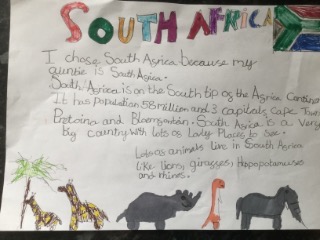 SOUTH AFRICA
I chose South Africa because my
auntie is South African.
South Africa is on the South tip of the Africa Continent
It has Population 58 million and 3 Capitals Cape Town
Pretoina and Bloemfontein. South Africa is a Very
big country with lots of Lovly Places to See.
Lots of animals live in South Africa
like lions, giraffes, Hippopotamuses
and rhinos.